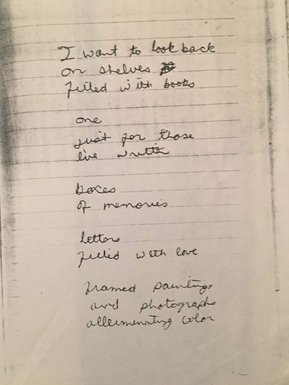 I want to look back
on shelves
filled with books
one
just for those
live written
boxes
of memories
letters
filled with love
framed paintings
and photographs
alleuminating color